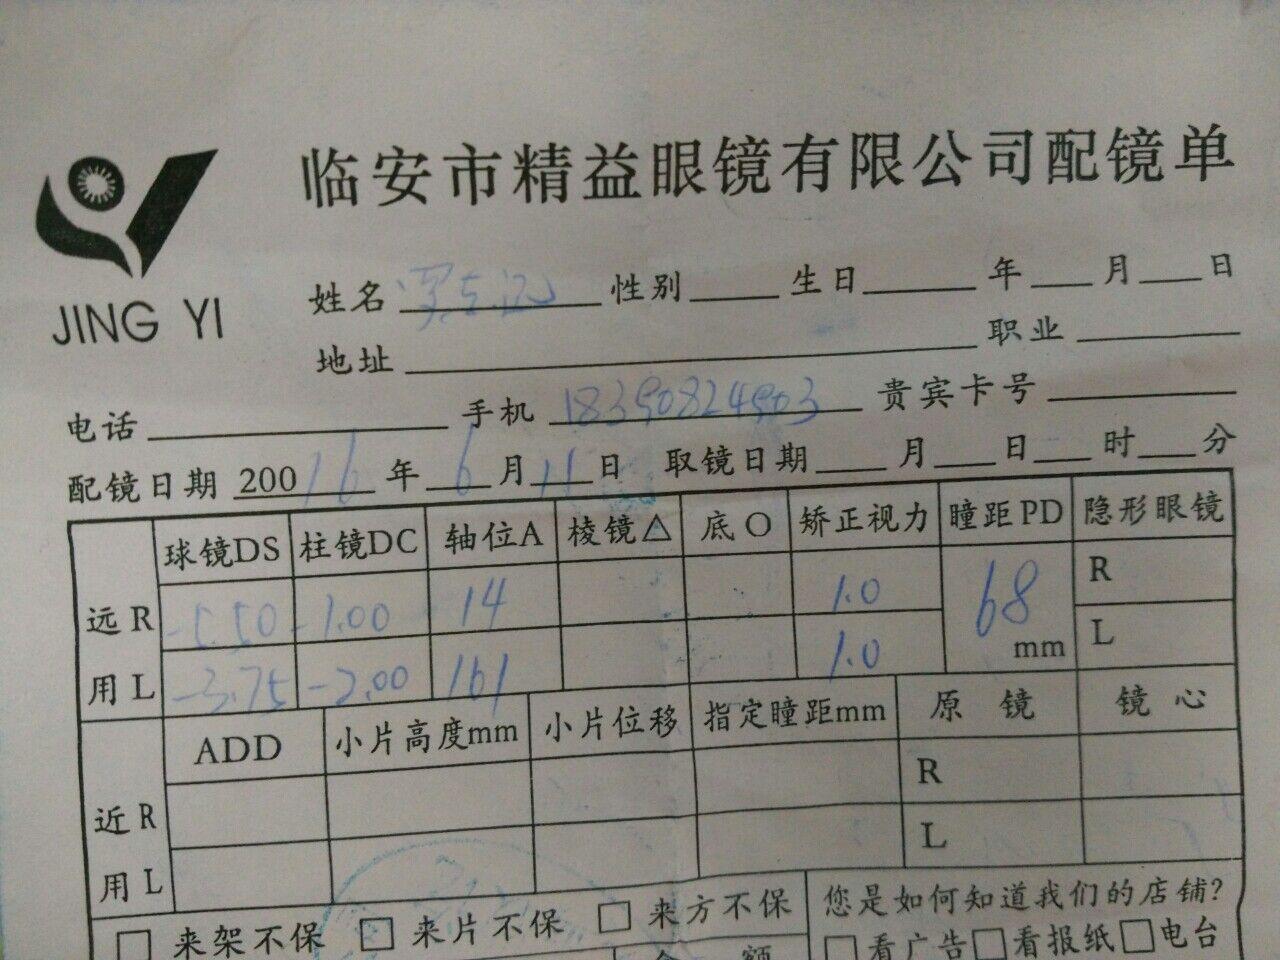 临安市精益眼镜有限公司配镜单
JING YI
姓名 性别 生日 年 月 日
地址 职业
电话 手机 18390824903 贵宾卡号
配镜日期 200 16 年 6 月 11 日 取镜日期 月 日 时 分
球镜DS 柱镜DC 轴位A 棱镜△ 底O 矫正视力 瞳距PD 隐形眼镜
远 R -5.50 -1.00 14 1.0 68 mm R
用 L -3.75 -2.00 161 1.0 L
ADD 小片高度mm 小片位移 指定瞳距mm 原镜 镜心
近 R R
用 L L
□ 来架不保 □ 来片不保 □ 来方不保 您是如何知道我们的店铺?
□看广告□看报纸□电台
金 额